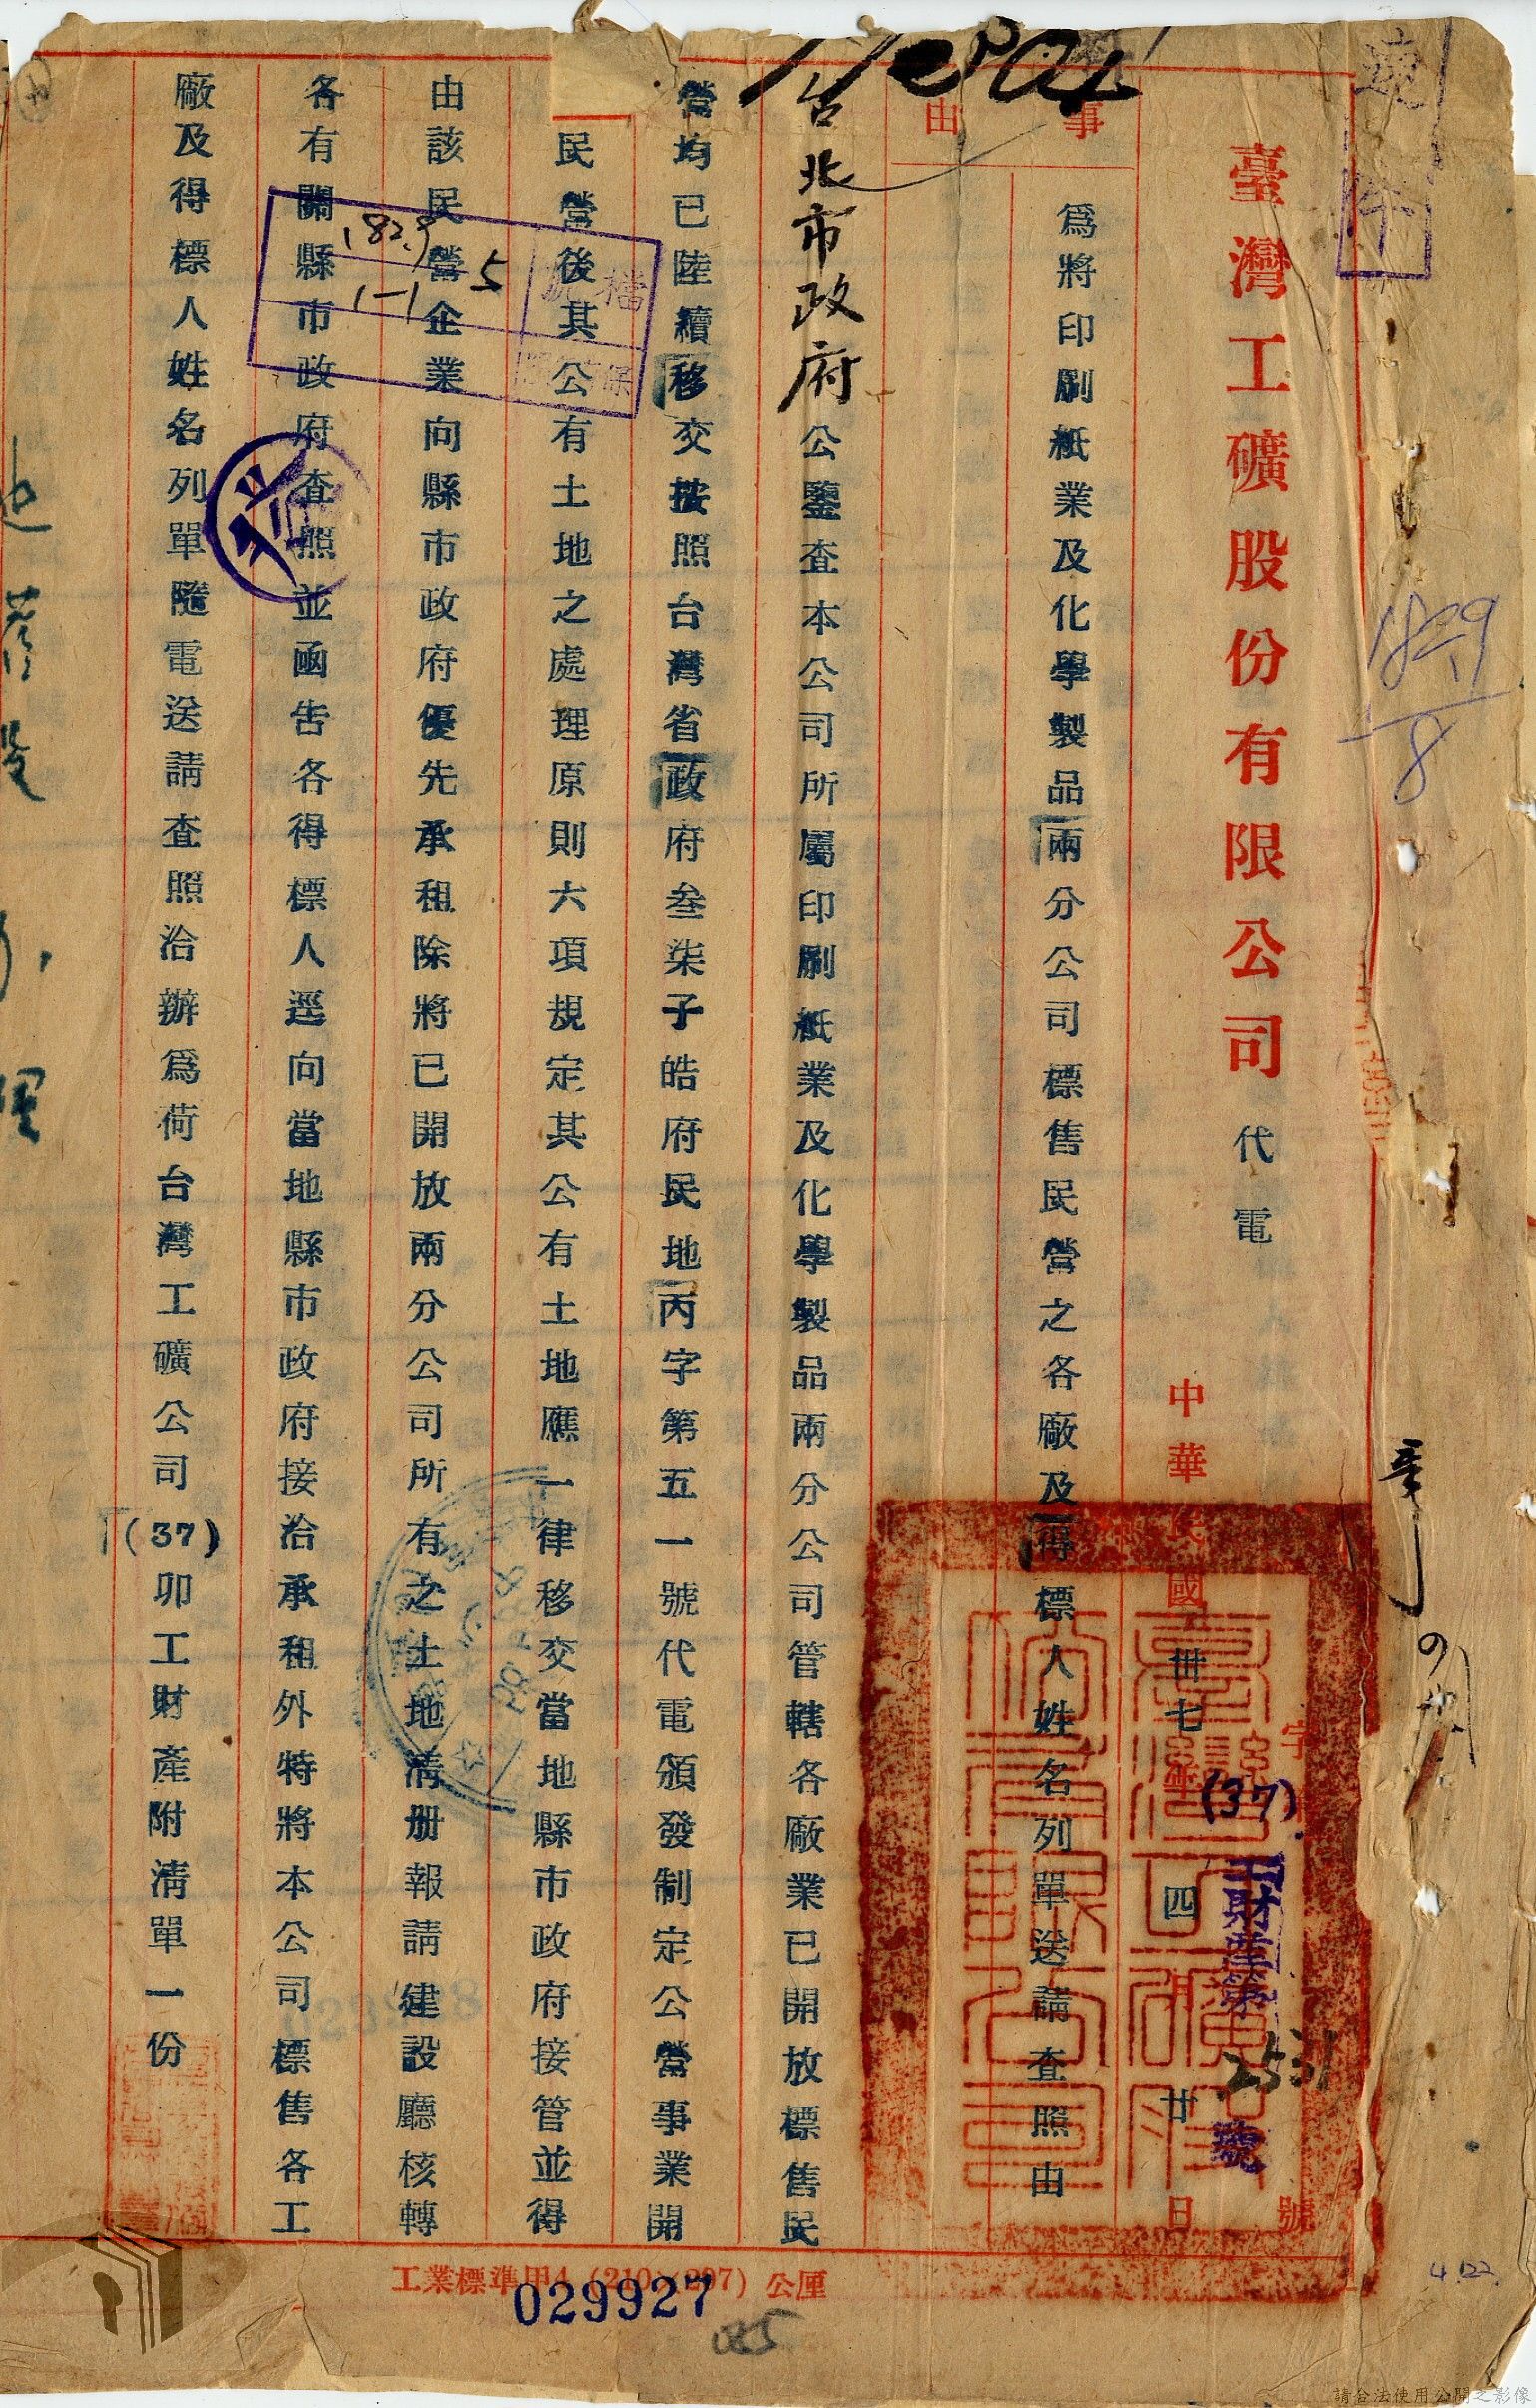 速
件
臺灣工礦股份有限公司代電
中華民國卅七年四月廿日
字
號
(37)工財產第2531號
事
由
為將印刷紙業及化學製品兩分公司標售民營之各廠及得標人姓名列單送請查照由
台北市政府公鑒查本公司所屬印刷紙業及化學製品兩分公司管轄各廠業已開放標售民
營均已陸續移交按照台灣省政府叁柒子皓府民地丙字第五一號代電頒發制定公營事業開
民營後其公有土地之處理原則六項規定其公有土地應一律移交當地縣市政府接管並得
由該民營企業向縣市政府優先承租除將已開放兩分公司所有之土地清册報請建設廳核轉
各有關縣市政府查照並函告各得標人逕向當地縣市政府接洽承租外特將本公司標售各工
廠及得標人姓名列單隨電送請查照洽辦為荷台灣工礦公司(37)卯工財產附清單一份
檔號
182.9
1-1
5
1829
8
工業標準甲4(210×297)公厘
029927
085
4.22.
請合法使用公開之影像